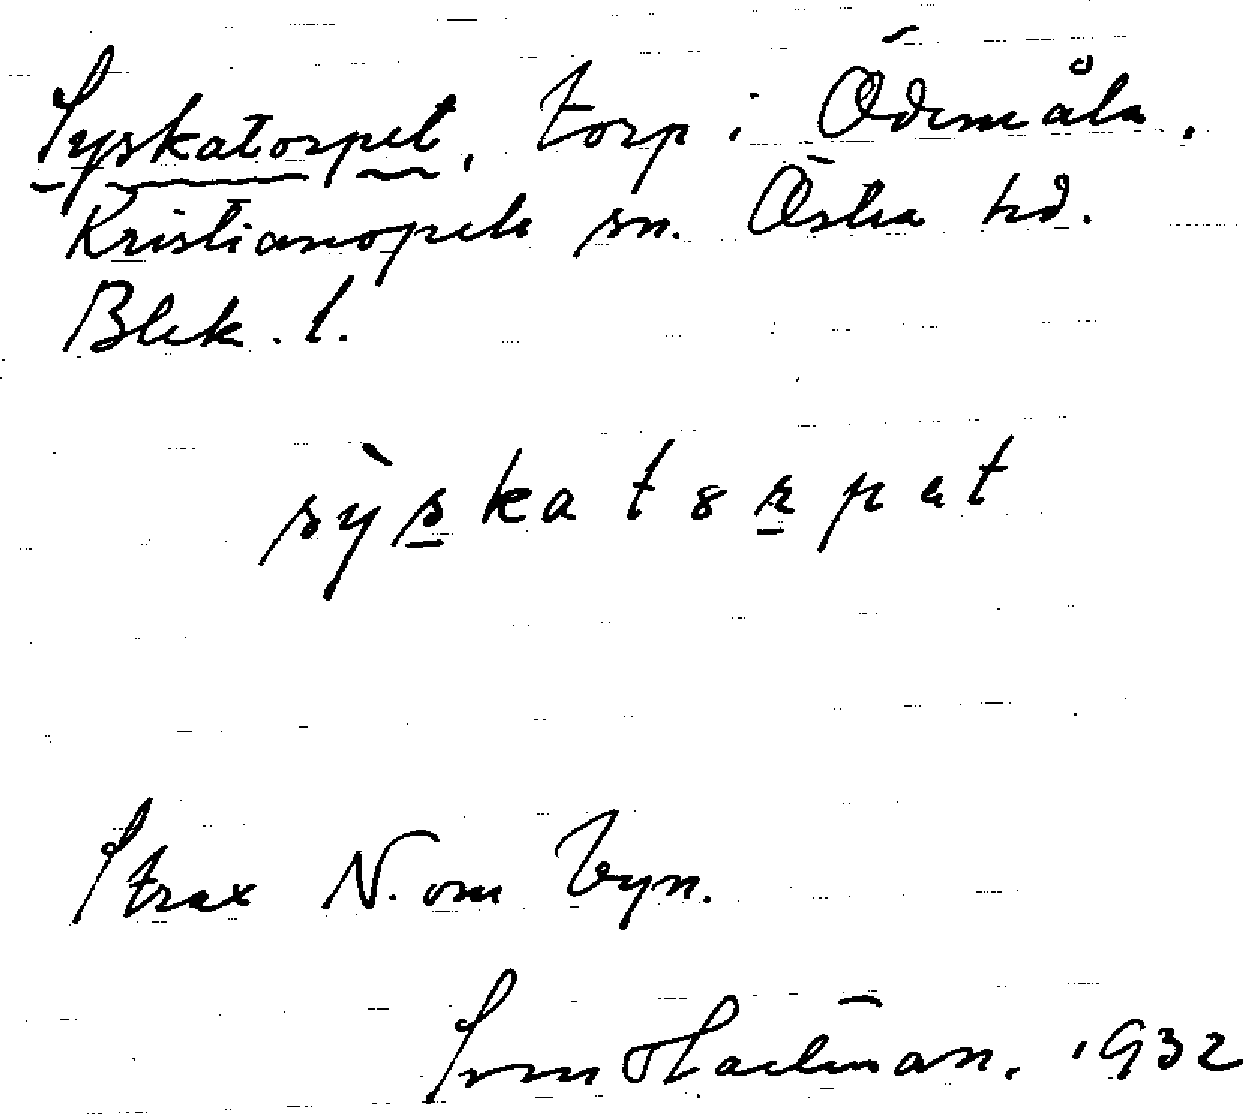 Syskatorpet, torp i Ödemåla,
Kristianopels sn. Östra hd.
Blek. l.
sỳskatȣrpet
Strax N. om byn.
Sven Hallman. 1932